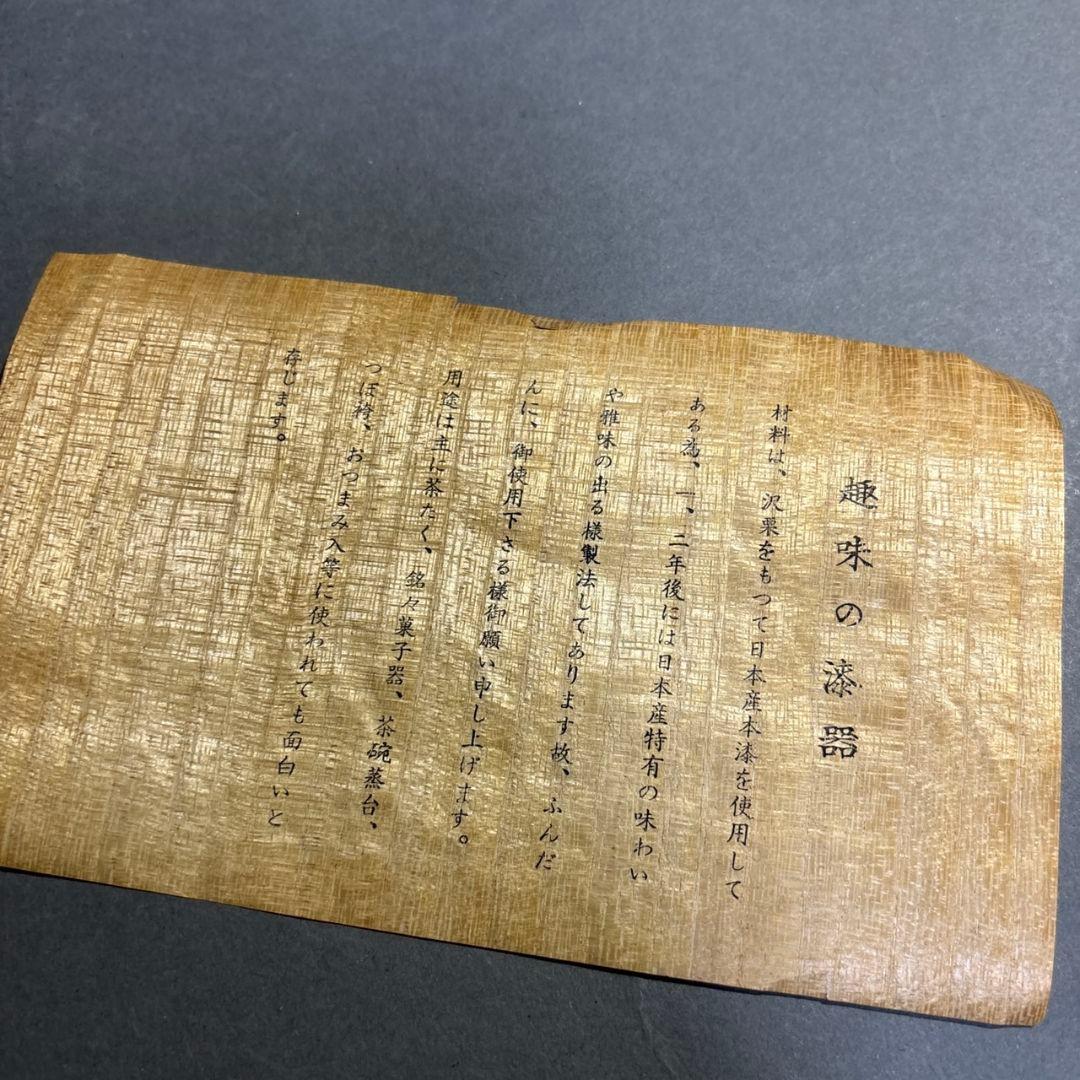 趣味の漆器
材料は、沢栗をもつて日本産本漆を使用して
ある為、一、二年後には日本産特有の味わい
や雅味の出る様製法してあります故、ふんだ
んに、御使用下さる様御願い申し上げます。
用途は主に茶たく、銘々菓子器、茶碗蒸台、
つぼ袴、おつまみ入等に使われても面白いと
存じます。